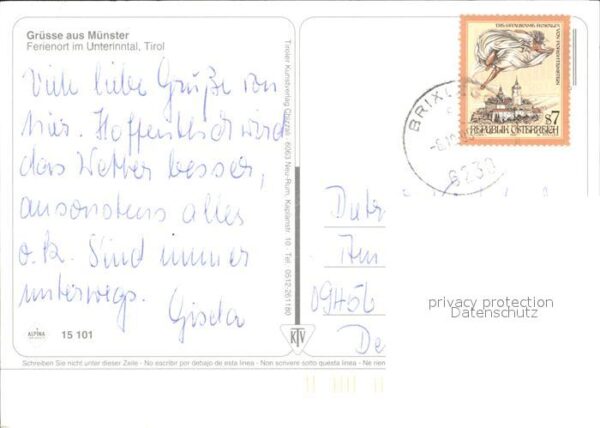 Grüsse aus Münster
Ferienort im Unterinntal, Tirol
Viele liebe Grüße von
hier. Hoffentlich wird
das Wetter besser,
ansonsten alles
o.k. Sind immer
unterwegs.
Gisela
ALPINA
15 101
Tiroler Kunstverlag Chizzali, 6063 Neu-Rum, Kaplanstr. 10 · Tel. 0512-261180
KTV
Schreiben Sie nicht unter dieser Zeile - No escribir por debajo de esta linea - Non scrivere sotto questa linea - Ne rien
VON FORCHTENSTEIN
S7
REPUBLIK ÖSTERREICH
BRIXL
6230
09456
De
privacy protection
Datenschutz